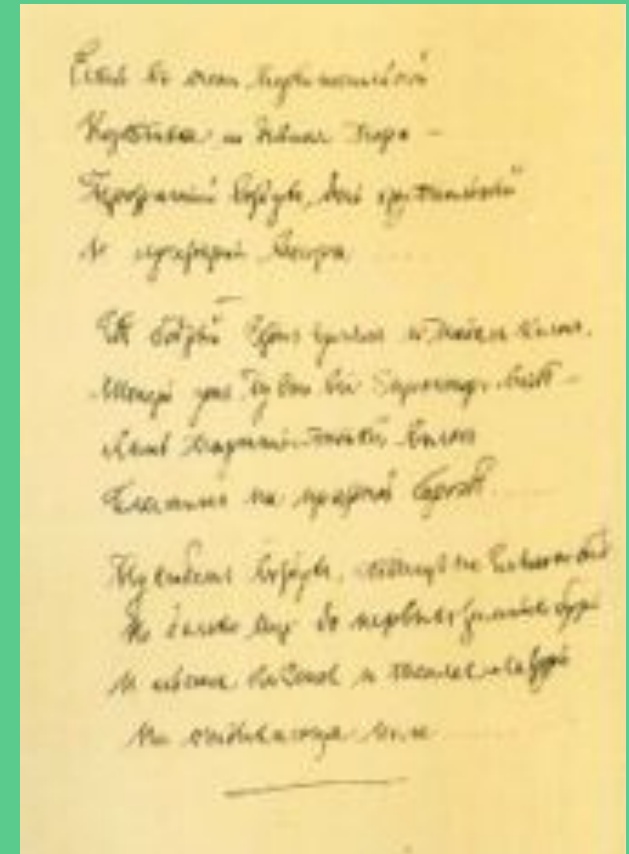 Есть въ осени первоначальной
Короткая но дивная пора –
Прозрачный воздухъ, день хрустальный
И лучезарны вечера.....
Где бодрый Серпъ гулялъ и падалъ колосъ,
пусто все Просторъ вездѣ –
Лишь паутины тонкій волосъ
Блестить на праздной бороздѣ.....
Пустѣетъ воздухъ, птицъ не слышно болѣ
Но далеко еще до первыхъ зимнихъ бурь
И льется чистая и теплая лазурь
На отдыхающее поле.....